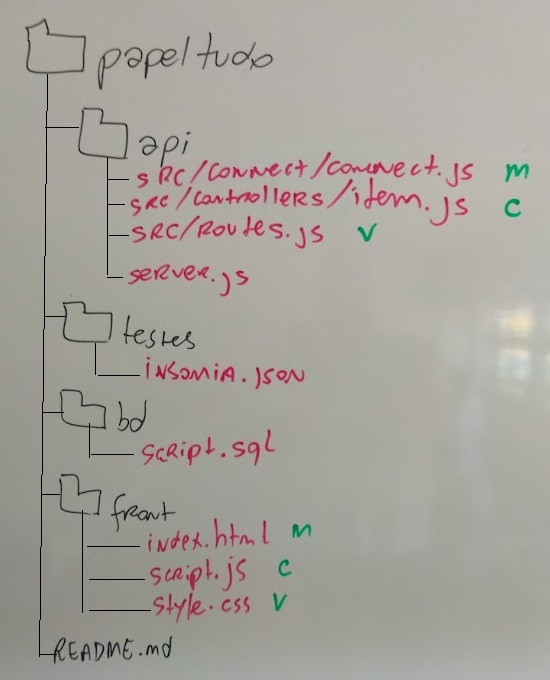 papeltudo
api
SRC/connect/connect.js M
SRC/controllers/item.js C
SRC/Routes.js V
SERVER.js
testes
INSOMIA.JSON
bd
SCRipt.sql
front
index.html M
script.js C
style.css V
README.md